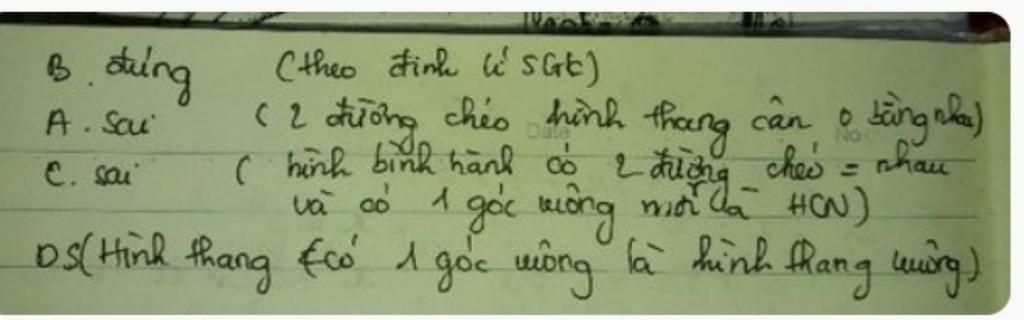 B. đúng (theo định lí SGK)
A. sai (2 đường chéo hình thang cân o bằng nhau)
C. sai ( hình bình hành có 2 đường chéo = nhau
và có 1 góc vuông mới là HCN)
DS(Hình thang có 1 góc vuông là hình thang vuông)